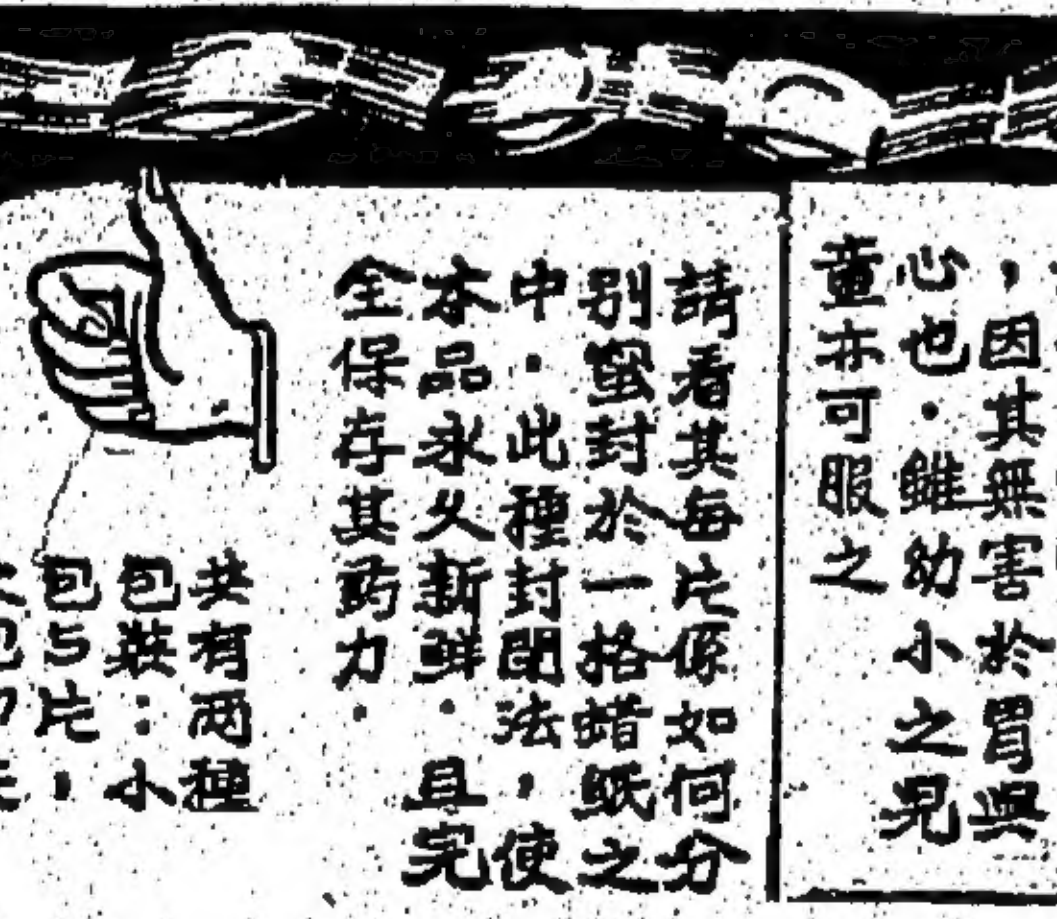 ，因其無害於胃與
心也．雖幼小之兒
童亦可服之
請看其每片係如何分
別蜜封於一格蜡紙之
中．此種封閉法，使
本品永久新鮮．且完
全保存其药力．
共有两種
包裝：小
包5片，